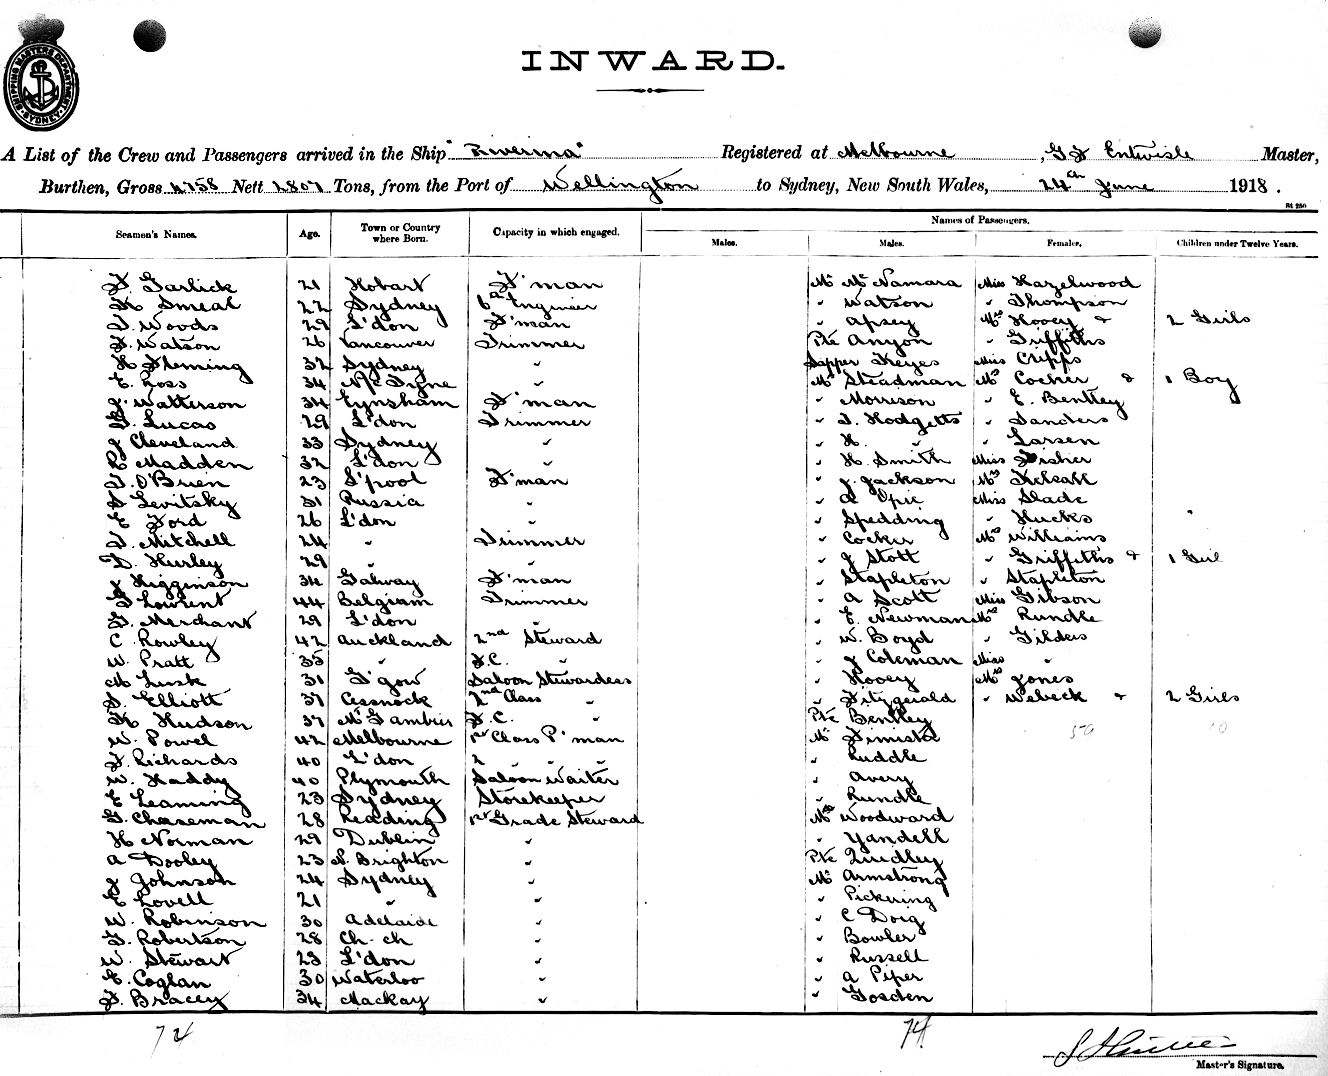 SHIPPING MASTERS DEPARTMENT SYDNEY
INWARD.
A List of the Crew and Passengers arrived in the Ship "Riverina" Registered at Melbourne, G J Entwisle Master,
Burthen, Gross 4758 Nett 2807 Tons, from the Port of Wellington to Sydney, New South Wales, 24th June 1918.
Names of Passengers.
Seamen's Names. Age. Town or Country where Born. Capacity in which engaged. Males. Males. Females. Children under Twelve Years.
F. Garlick 21 Hobart F'man Mr McNamara Miss Hazelwood
H Smeal 22 Sydney 6th Engineer " Watson " Thompson
T. Woods 29 L'don F'man " Apsey Mrs Hooey & 2 Girls
F. Watson 26 Vancouver Trimmer Pte Anyon " Griffiths
H Fleming 32 Sydney " Sapper Keyes Miss Cripps
E. Ross 34 N/c Tyne " Mr Steadman Mrs Cocker & 1 Boy
J. Watterson 34 Eynsham F'man " Morrison " E. Bentley
G. Lucas 29 L'don Trimmer " T. Hodgetts " Sanders
J Cleveland 33 Sydney " " H. " " Larsen
R Madden 32 L'don " " H. Smith Miss Fisher
T. O'Brien 23 L'pool F'man " J. Jackson Mrs Kelsall
S Levitsky 31 Russia " " A Opie Miss Slade
E Ford 26 L'don " " Spedding " Hucks
T. Mitchell 24 " Trimmer " Cocker Mrs Williams
D. Hurley 29 " " J Stott " Griffiths & 1 Girl
J Higginson 34 Galway F'man " Stapleton " Stapleton
G Lowrent 44 Belgium Trimmer " A Scott Miss Gibson
G. Merchant 29 L'don " " E. Newman Mrs Rundle
C. Rowley 42 Auckland 2nd Steward " W. Boyd " Gilders
W. Pratt 35 " F.C. " " J Coleman Miss "
M Lusk 31 G'gow Saloon Stewardess " Hooey Mrs Jones
S. Elliott 37 Cessnock 2nd Class " " Fitzgerald " Webeck & 2 Girls
H Hudson 37 Mt Gambier F.C. " Pte Bentley
W. Powel 42 Melbourne 1st Class P'man Mr
F. Richards 40 L'don 2 " " " " Ruddle
W. Haddy 40 Plymouth Saloon Waiter " Avery
E Leaming 23 Sydney Storekeeper " Rundle
G. Chaseman 28 Reading 1st Grade Steward Mrs Woodward
H Norman 29 Dublin " " Yandell
A Dooley 23 N. Brighton " Pte Lindley
J Johnson 24 Sydney " Mr Armstrong
E Lovell 21 " " " Pickering
W. Robinson 30 Adelaide " " C Doig
G. Robertson 28 Ch. ch " " Bowler
W. Stewart 23 L'don " " Russell
E. Coglan 30 Waterloo " " A Piper
F. Bracey 34 Mackay " " Gosden
74 74
Master's Signature.